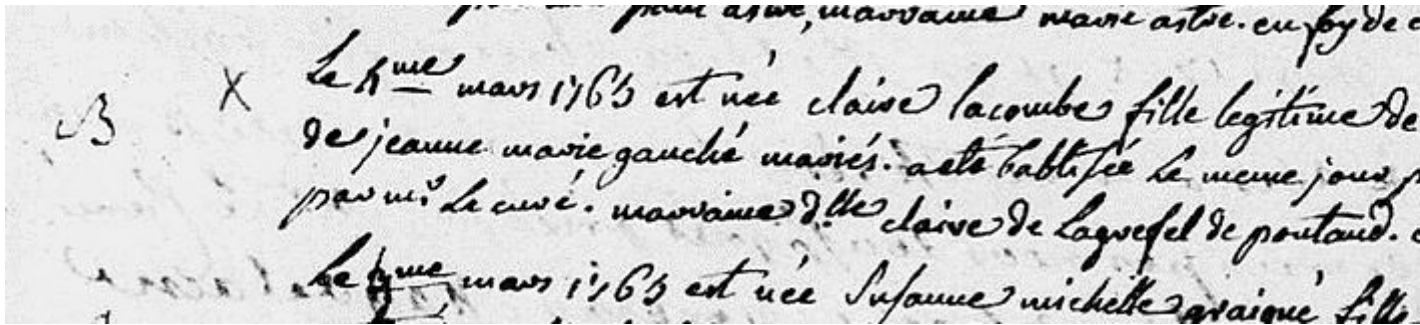 marraine marie astre. en foy de
B X Le 4me mars 1765 est née claire lacombe fille legitime de
de jeanne marie gauché mariés. a eté babtisée le meme jour
par mr. le curé. marraine d.lle claire de lagrefel de poutaud.
Le me mars 1765 est née Susanne michelle graigné fille